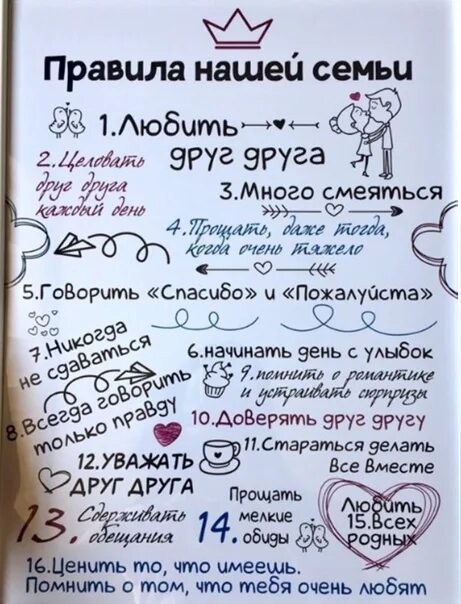 Правила нашей семьи
1.Любить
друг друга
2.Целовать
друг друга
каждый день
3.Много смеяться
4.Прощать, даже тогда,
когда очень тяжело
5.Говорить «Спасибо» и «Пожалуйста»
6.начинать день с улыбок
7.Никогда
не сдаваться
8.Всегда говорить
только правду
9.помнить о романтике
и устраивать сюрпризы
10.Доверять друг другу
11.Стараться делать
Все Вместе
12.УВАЖАТЬ
ДРУГ ДРУГА
13. Сдерживать
обещания
14. Прощать
мелкие
обиды
Любить
15.Всех
родных
16.Ценить то, что имеешь.
Помнить о том, что тебя очень любят